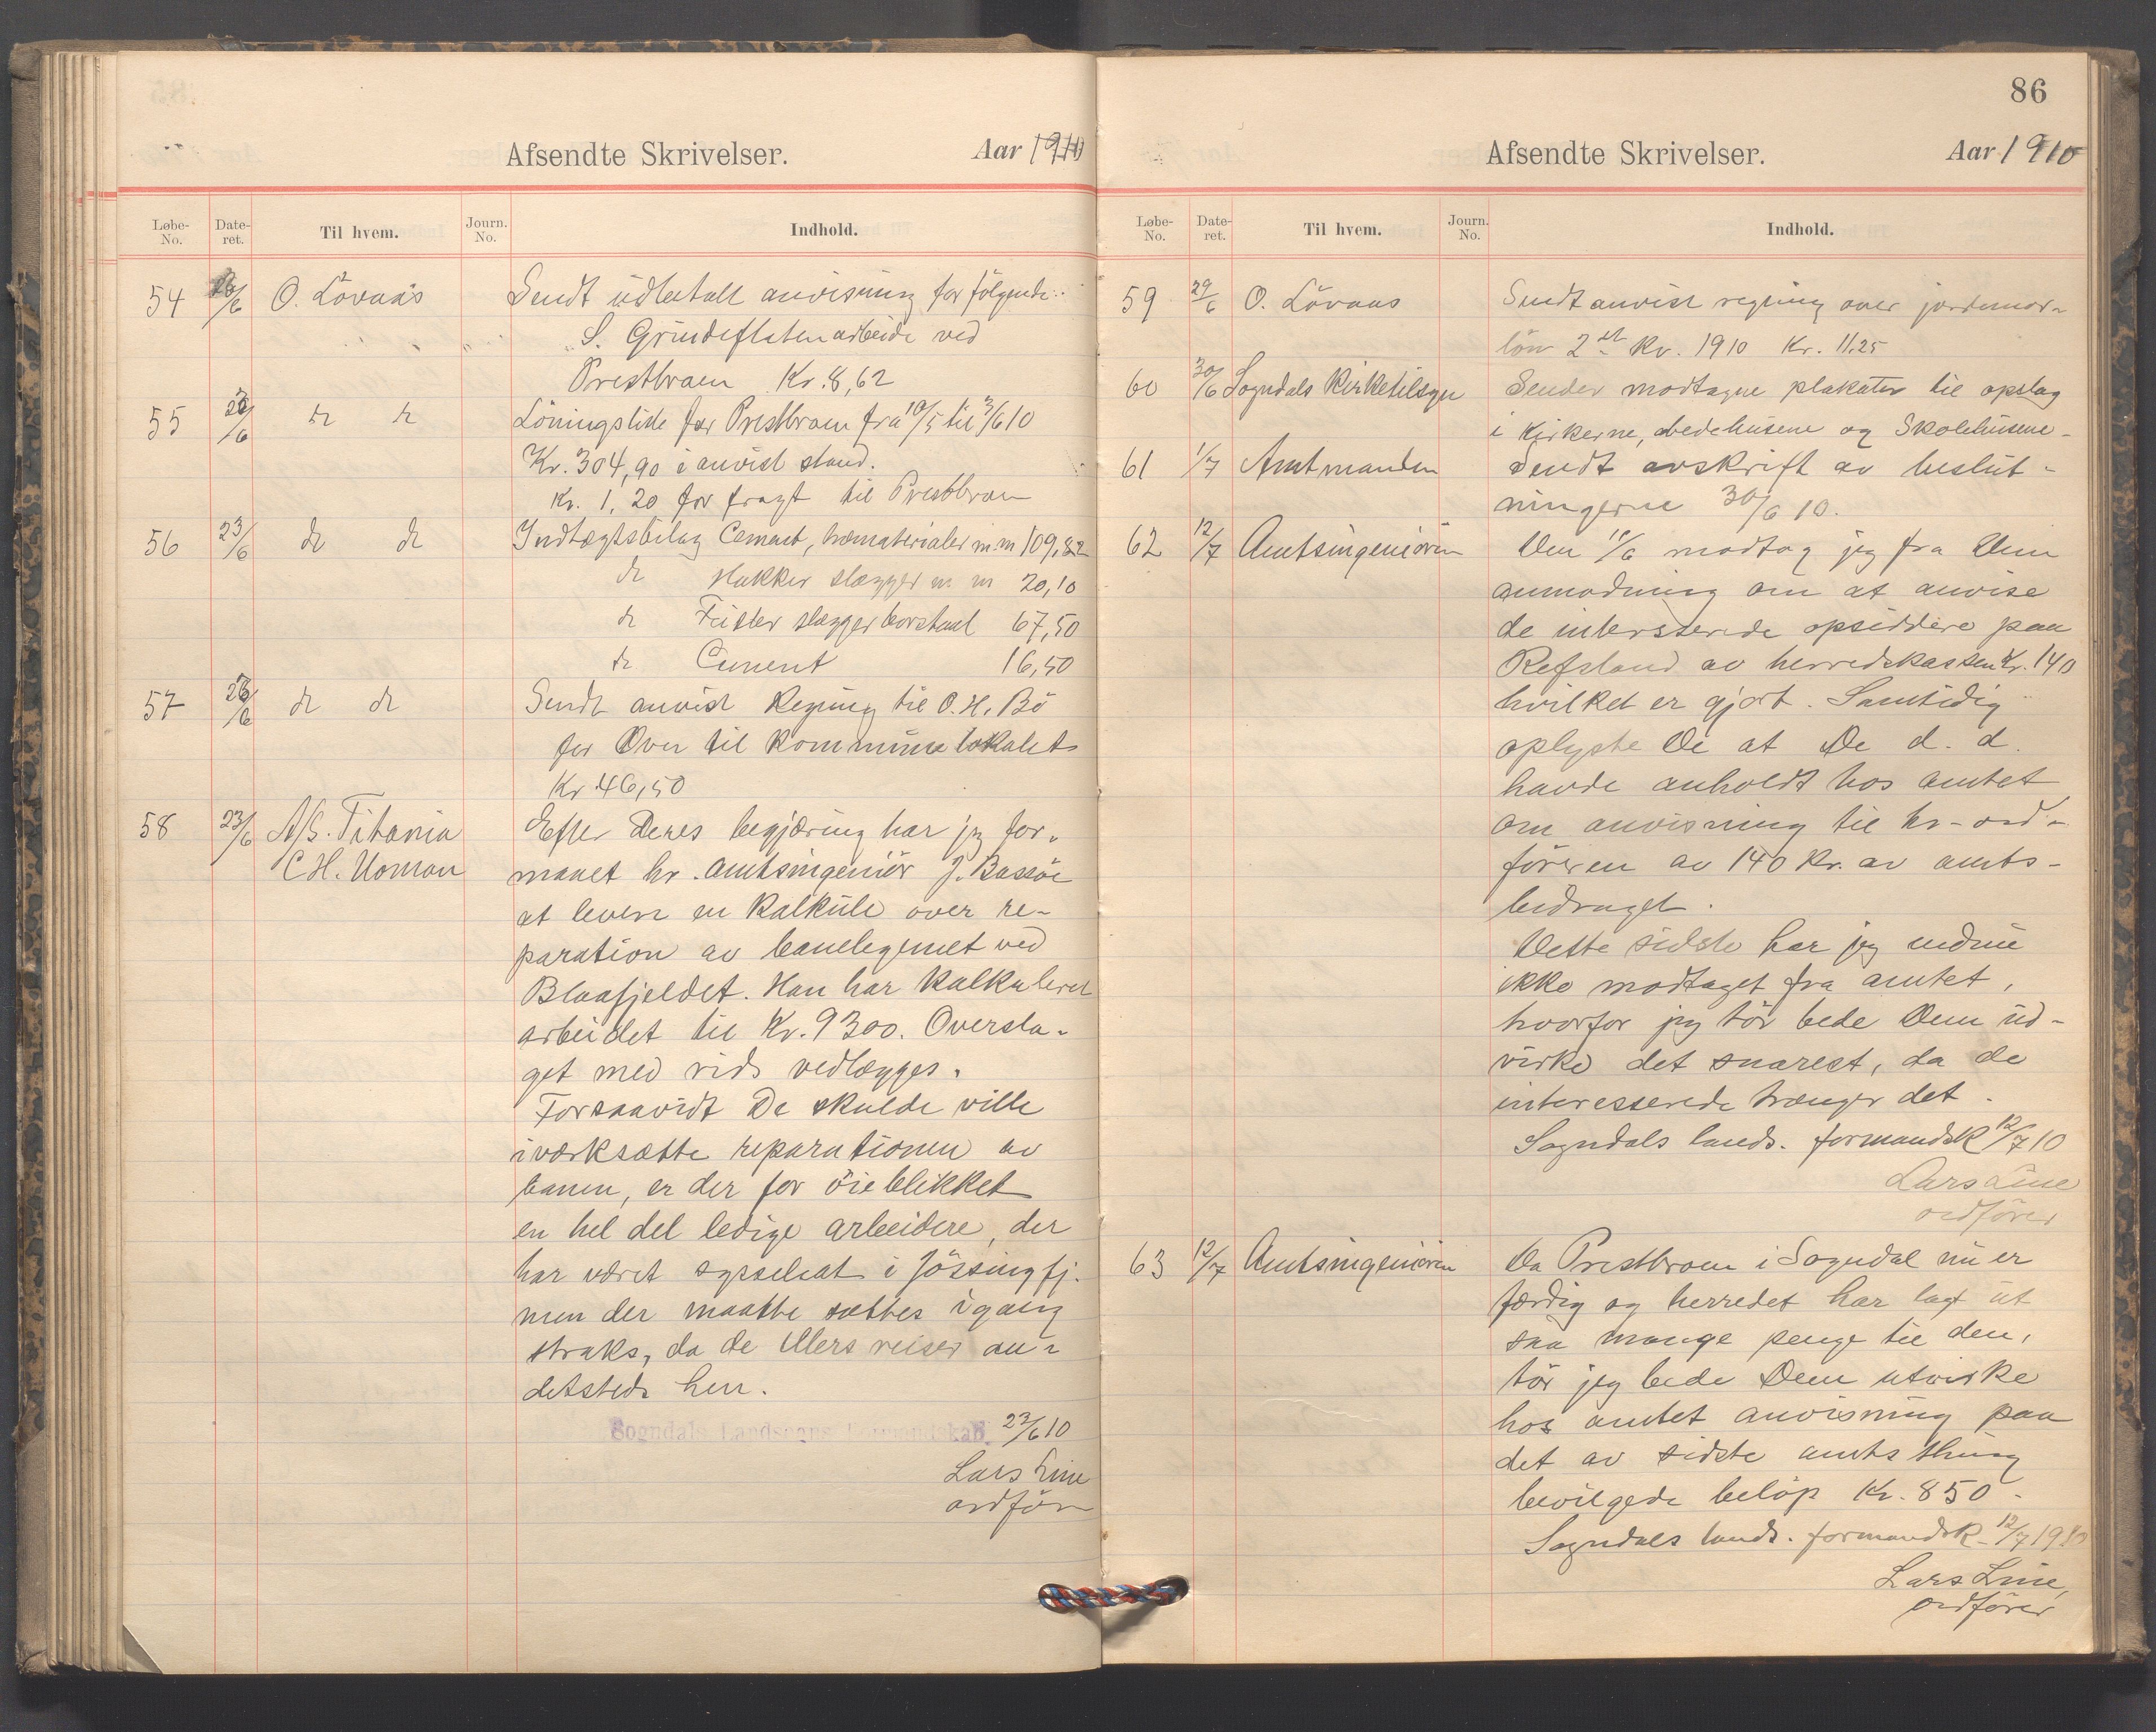 Afsendte Skrivelser. Aar 1910
Løbe-No. Date-ret. Til hvem. Journ. No. Indhold.
54 23/6 O. Lövaas Sendt udbetalt anvisning for følgende:
S. Grindefletenarbeide ved
Prestbroen Kr. 8,62
55 23/6 do do Löningsliste for Prestbroen fra 10/5 til 3/6 10
Kr. 304,90 i anvist stand.
Kr. 1,20 for fragt til Prestbroen
56 23/6 do do Indtægtsbilag Cement, træmaterialer m.m 109,82
do Hakker slægger m m 20,10
do Feisler slægger borstaal 67,50
do Cement 16,50
57 23/6 do do Sendt anvist Regning til O. H. Bö
for Ovn til kommunelokalet
Kr 46,50
58 23/6 A/S. Titania Efter Deres begjæring har jeg for-
C H. Uoman maaet hr. amtsingeniör J. Bassöe
at levere en Kalkule over re-
paration av banelegemet ved
Blaafjeldet. Han har Kalkuleret
arbeidet til Kr. 9300. Oversla-
get med rids vedlægges.
Forsaavidt De skulde ville
iværksætte reparationen av
banen, er der for öieblikket
en hel del ledige arbeidere, der
har været sysselsat i Jössingfj.
men der maatte sættes igang
straks, da de ellers reiser an-
detsteds hen.
Sogndals Landsogns Formandskab, 23/6 10
Lars Line
ordför
86
Afsendte Skrivelser. Aar 1910
Løbe-No. Date-ret. Til hvem. Journ. No. Indhold.
59 29/6 O. Lövaas Sendt anvist regning over jordemor-
lön 2det Kv. 1910 Kr. 11.25
60 30/6 Sogndals Kirketilsyn Sender modtagne plakater til opslag
i Kirkerne, bedehusene og Skolehusene-
61 1/7 Amtmanden Sendt avskrift av beslut-
ningerne 30/6 10.
62 12/7 Amtsingeniören Den 11/6 modtog jeg fra Dem
anmodning om at anvise
de interesserede opsiddere paa
Refsland av herredskassen Kr. 140
hvilket er gjort. Samtidig
oplyste De at De d. d.
havde anholdt hos amtet
om anvisning til hr-ord-
föreren av 140 Kr. av amts-
bidraget.
Dette sidste har jeg endnu
ikke modtaget fra amtet,
hvorfor jeg tör bede Dem ud-
virke det snarest, da de
interesserede trænger det.
Sogndals lands. formandsk 12/7 10
Lars Line
ordförer
63 12/7 Amtsingeniören Da Prestbroen i Sogndal nu er
færdig og herredet har lagt ut
saa mange penge til den,
tör jeg bede Dem utvirke
hos amtet anvisning paa
det av sidste amtsthing
bevilgede belöp Kr. 850-
Sogndals lands. formandsk- 12/7 1910
Lars Line,
ordförer